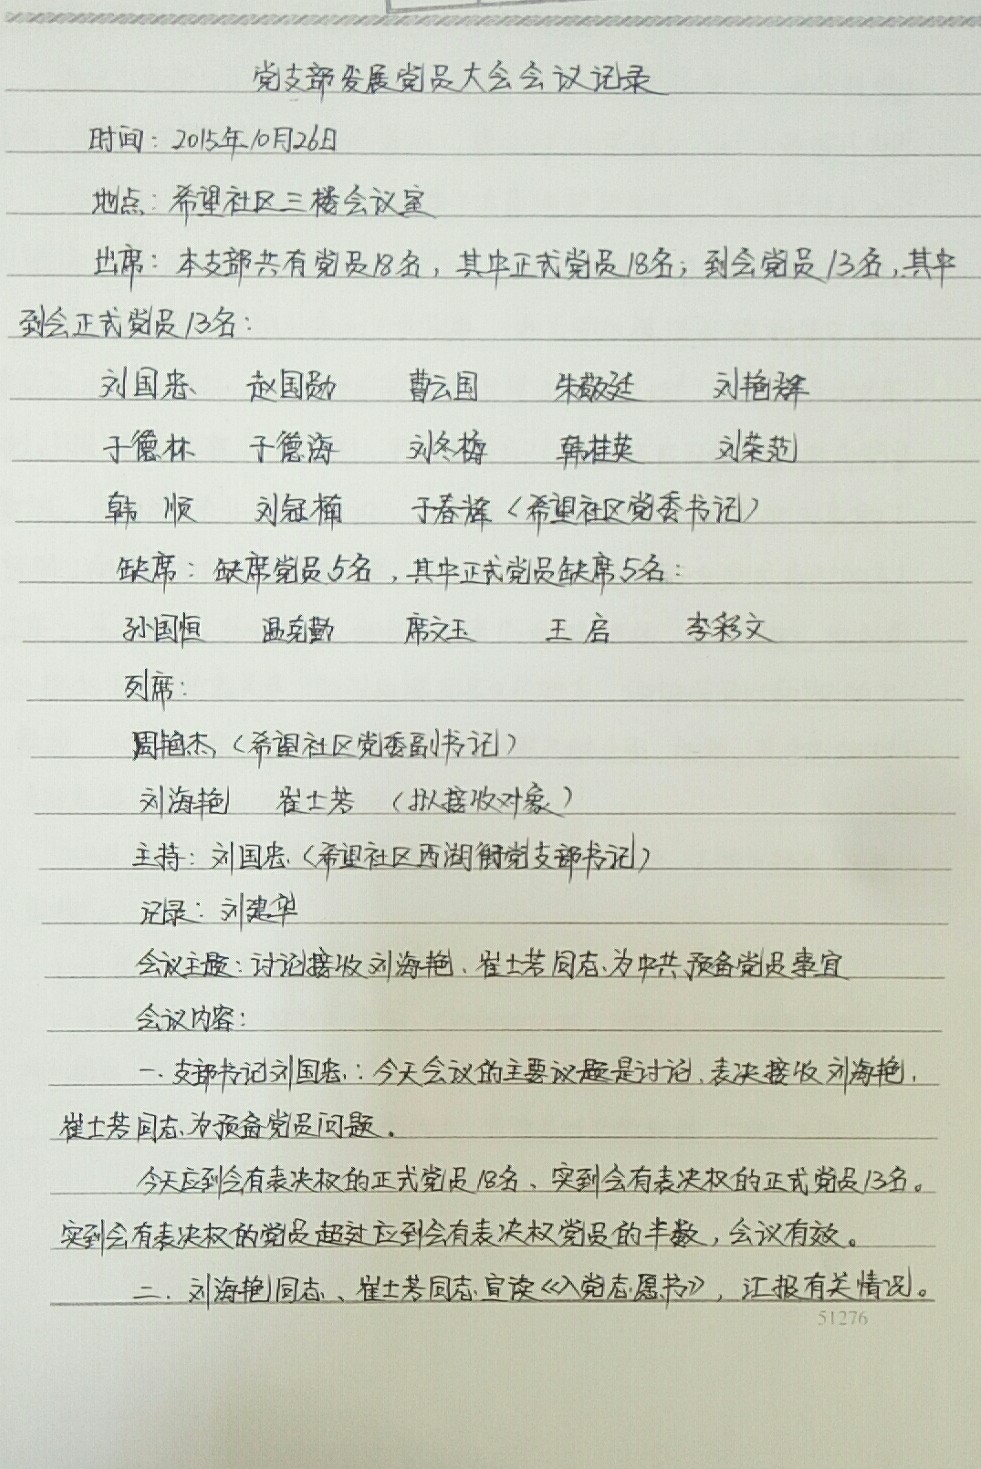 党支部发展党员大会会议记录
时间：2015年10月26日
地点：希望社区三楼会议室
出席：本支部共有党员18名，其中正式党员18名；到会党员13名，其中
到会正式党员13名：
刘国忠 赵国勋 曹云国 朱敬廷 刘艳辉
于德林 于德海 刘冬梅 韩桂英 刘荣范
韩 顺 刘冠楠 于春辉（希望社区党委书记）
缺席：缺席党员5名，其中正式党员缺席5名：
孙国恒 温克勤 席文玉 王 启 李彩文
列席：
周艳杰（希望社区党委副书记）
刘海艳 崔士芳 （拟接收对象）
主持：刘国忠（希望社区西湖街党支部书记）
记录：刘建华
会议主题：讨论接收刘海艳、崔士芳同志为中共预备党员事宜
会议内容：
一、支部书记刘国忠：今天会议的主要议题是讨论、表决接收刘海艳、
崔士芳同志为预备党员问题。
今天应到会有表决权的正式党员18名、实到会有表决权的正式党员13名。
实到会有表决权的党员超过应到会有表决权党员的半数，会议有效。
二、刘海艳同志、崔士芳同志宣读《入党志愿书》，汇报有关情况。
51276